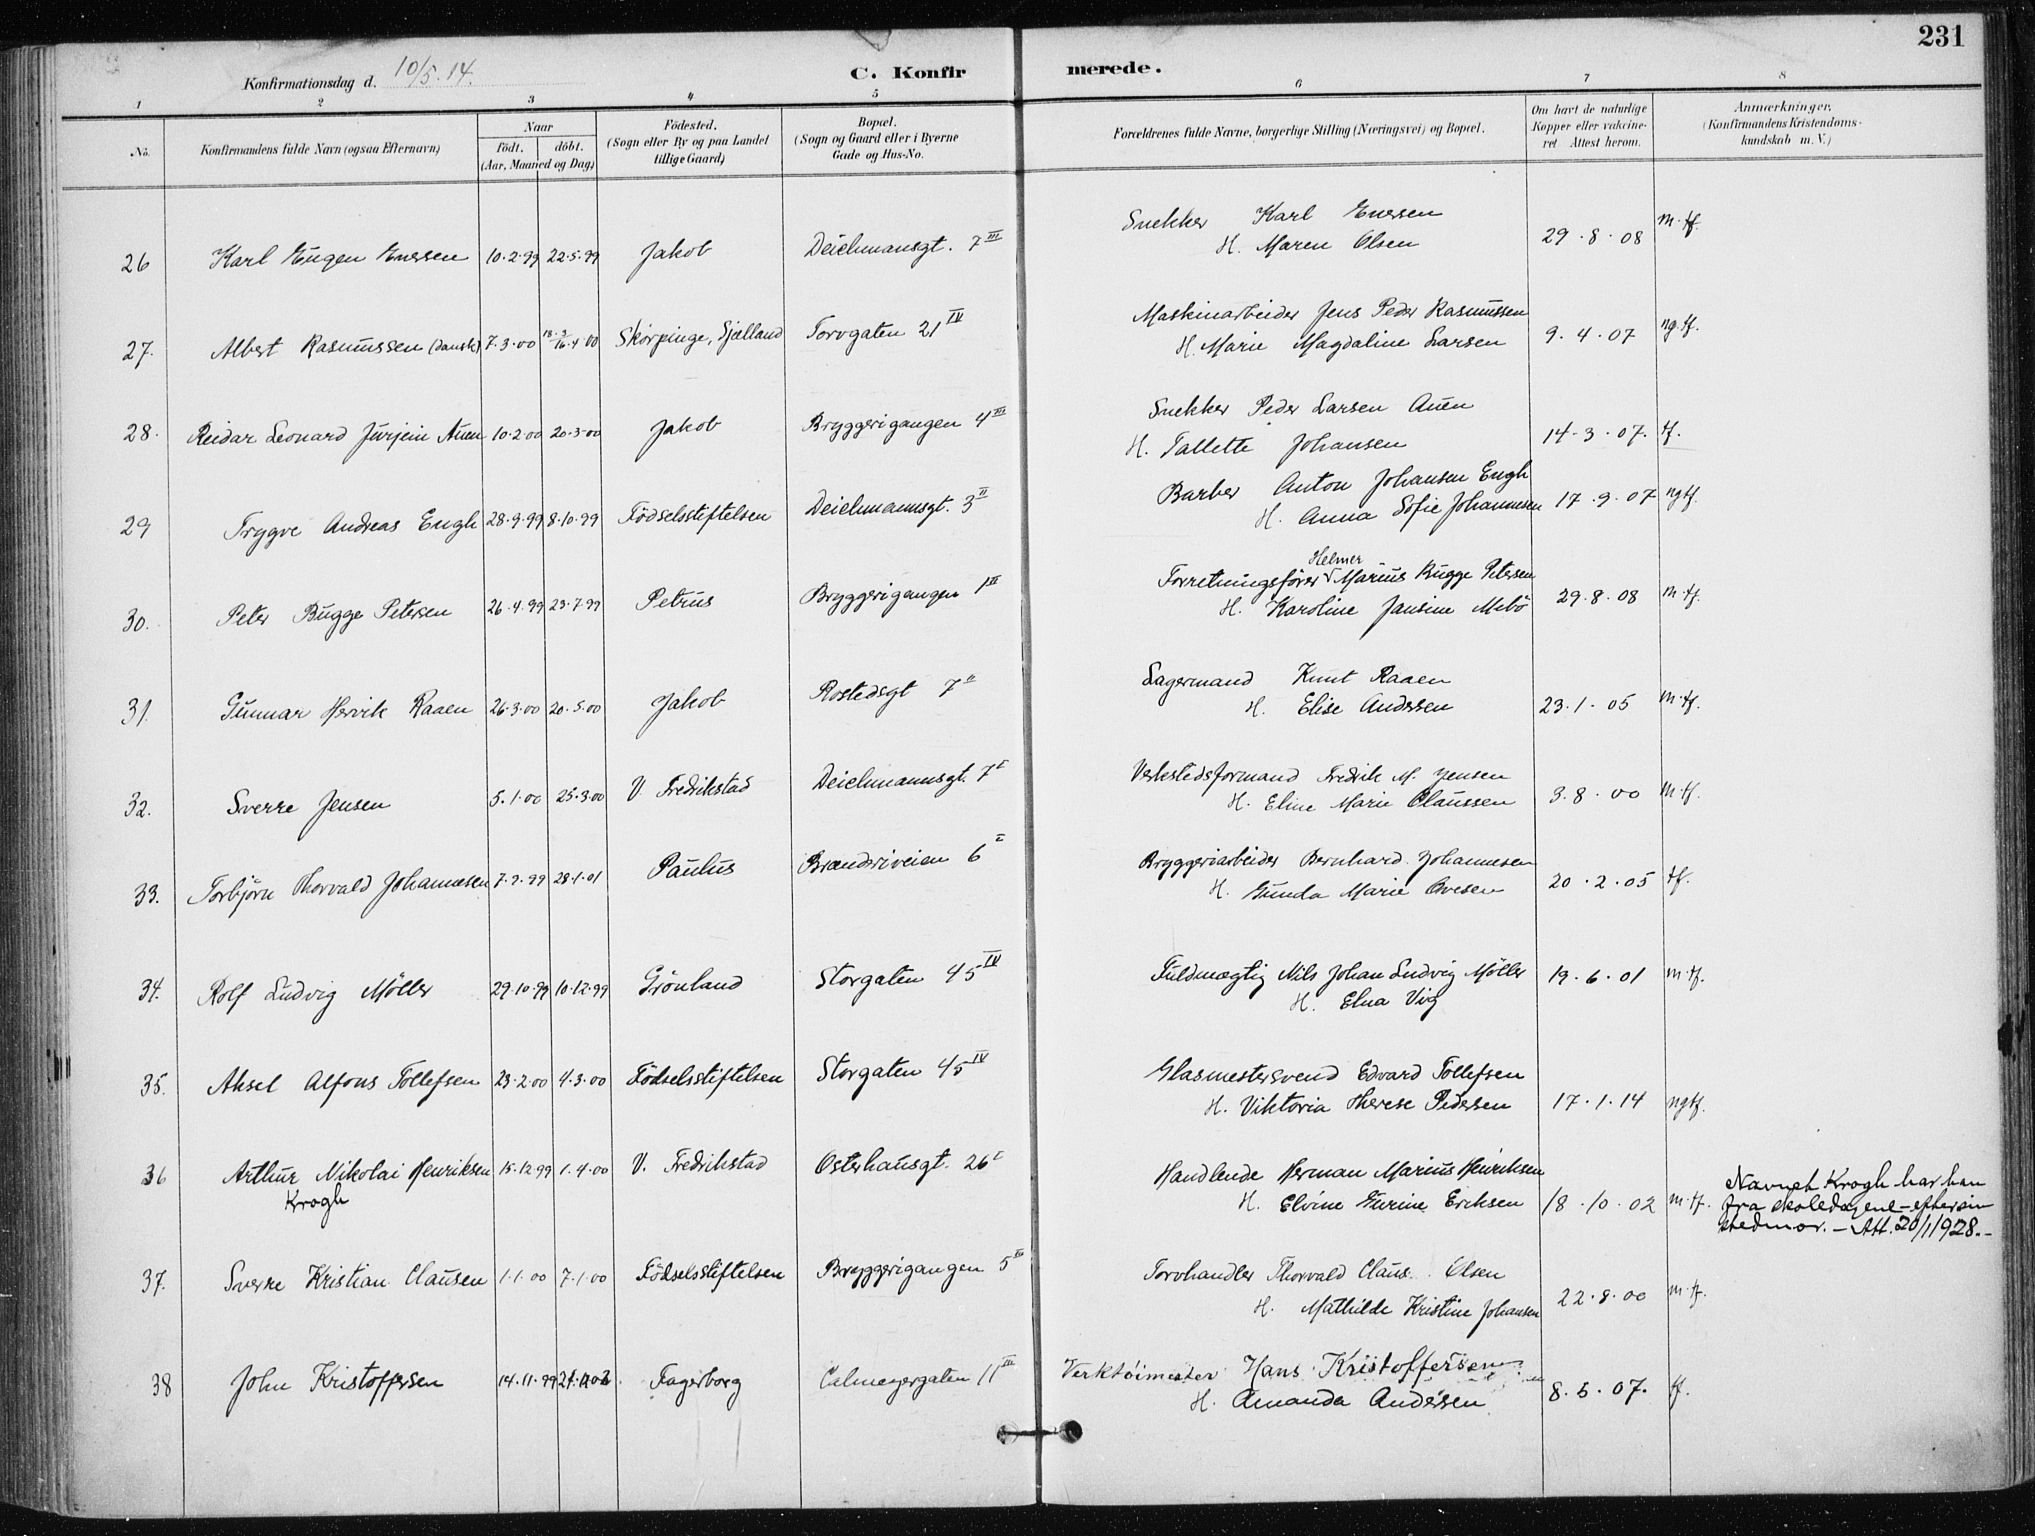 231
Konfirmationsdag d. 10/5.14.
C. Konfirmerede.
1 2 3 4 5 6 7 8
No.
Konfirmandens fulde Navn (ogsaa Efternavn)
Naar
födt. döbt.
(Aar, Maaned og Dag)
Födested.
(Sogn eller By og paa Landet
tillige Gaard)
Bopæl.
(Sogn og Gaard eller i Byerne
Gade og Hus-No.
Forældrenes fulde Navne, borgerlige Stilling (Næringsvei) og Bopæl.
Om havt de naturlige
Kopper eller vakcine-
ret Attest herom.
Anmærkninger.
(Konfirmandens Kristendoms-
kundskab m. V.)
26 Karl Eugen Enersen 10.2.99 22.5.99 Jakob Deichmansgt. 7 III Snekker Karl Enersen 29.8.08 m.tf.
H. Maren Olsen
27. Albert Rasmussen (dansk) 7.3.00 18.3/16.4.00 Skörpinge, Sjælland Torvgaten 21 IV Maskinarbeider Jens Peder Rasmussen 9.4.07 ng.tf.
H. Marie Magdaline Larsen
28. Reidar Leonard Jürjein Auen 10.2.00 20.3.00 Jakob Bryggerigangen 4 III Snekker Peder Larsen Auen 14.3.07. tf.
H. Tallette Johansen
29 Trygve Andreas Engh 28.9.99 8.10.99 Födselsstiftelsen Deichmannsgt. 3 II Barber Anton Johansen Engh 17.9.07 ngtf.
H. Anna Sofie Johannesen
30. Peter Bugge Petersen 26.4.99 23.7.99 Petrus Bryggerigangen 1 II Forretningsförer Helmer Marius Bugge Petersen 29.8.08 m.tf.
H. Karoline Jansine Mebö
31. Gunnar Hervik Raaen 26.3.00 20.5.00 Jakob Rostedsgt 7 II Lagermand Knut Raaen 23.1.05 m.tf.
H. Elise Andersen
32. Sverre Jensen 5.1.00 25.3.00 V. Fredrikstad Deichmannsgt. 7 I Verkstedsformand Fredrik M. Jensen 3.8.00 m.tf.
H. Eline Marie Claussen
33. Torbjörn Thorvald Johannesen 7.9.99 28.1.01 Paulus Brænderiveien 6 I Bryggeriarbeider Bernhard Johannesen 20.2.05 tf.
H. Gunda Marie Ovesen
34. Rolf Ludvig Möller 29.10.99 10.12.99 Grönland Storgaten 45 IV Fuldmægtig Nils Johan Ludvig Möller 19.6.01 m.tf.
H. Elna Vig
35. Aksel Alfons Tollefsen 23.2.00 4.3.00 Födselsstiftelsen Storgaten 45 IV Glasmestersvend Edvard Tollefsen 17.1.14 ngtf.
H. Viktoria Therese Pedersen
36 Arthur Nikolai Henriksen 15.12.99 1.4.00 V. Fredrikstad Osterhausgt. 26 I Handlende Herman Marius Henriksen 18.10.02 m.tf.
Krogh
H. Elvine Gurine Eriksen
Navnet Krogh har han
fra skoledagene - efter sin
stedmor. - Att. 20/1 1928. -
37. Sverre Kristian Clausen 1.1.00 7.1.00 Födselsstiftelsen Bryggerigangen 5 III Torvhandler Thorvald Claus. Olsen 22.8.00 m.tf.
H. Mathilde Kristine Johansen
38 John Kristoffersen 14.11.99 Fagerborg Calmeyergaten 11 III Verktöimester Hans Kristoffersen 8.5.07. tf.
H. Amanda Andersen